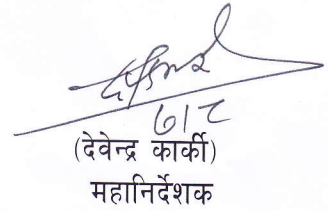 ७१२
(देवेन्द्र कार्की)
महानिर्देशक